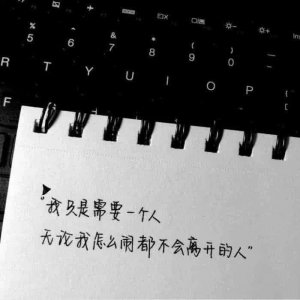 % ^ & * ( )
5 6 7 8 9 0
R T Y U I O P
F
“我只是需要一个人
无论我怎么闹都不会离开的人”